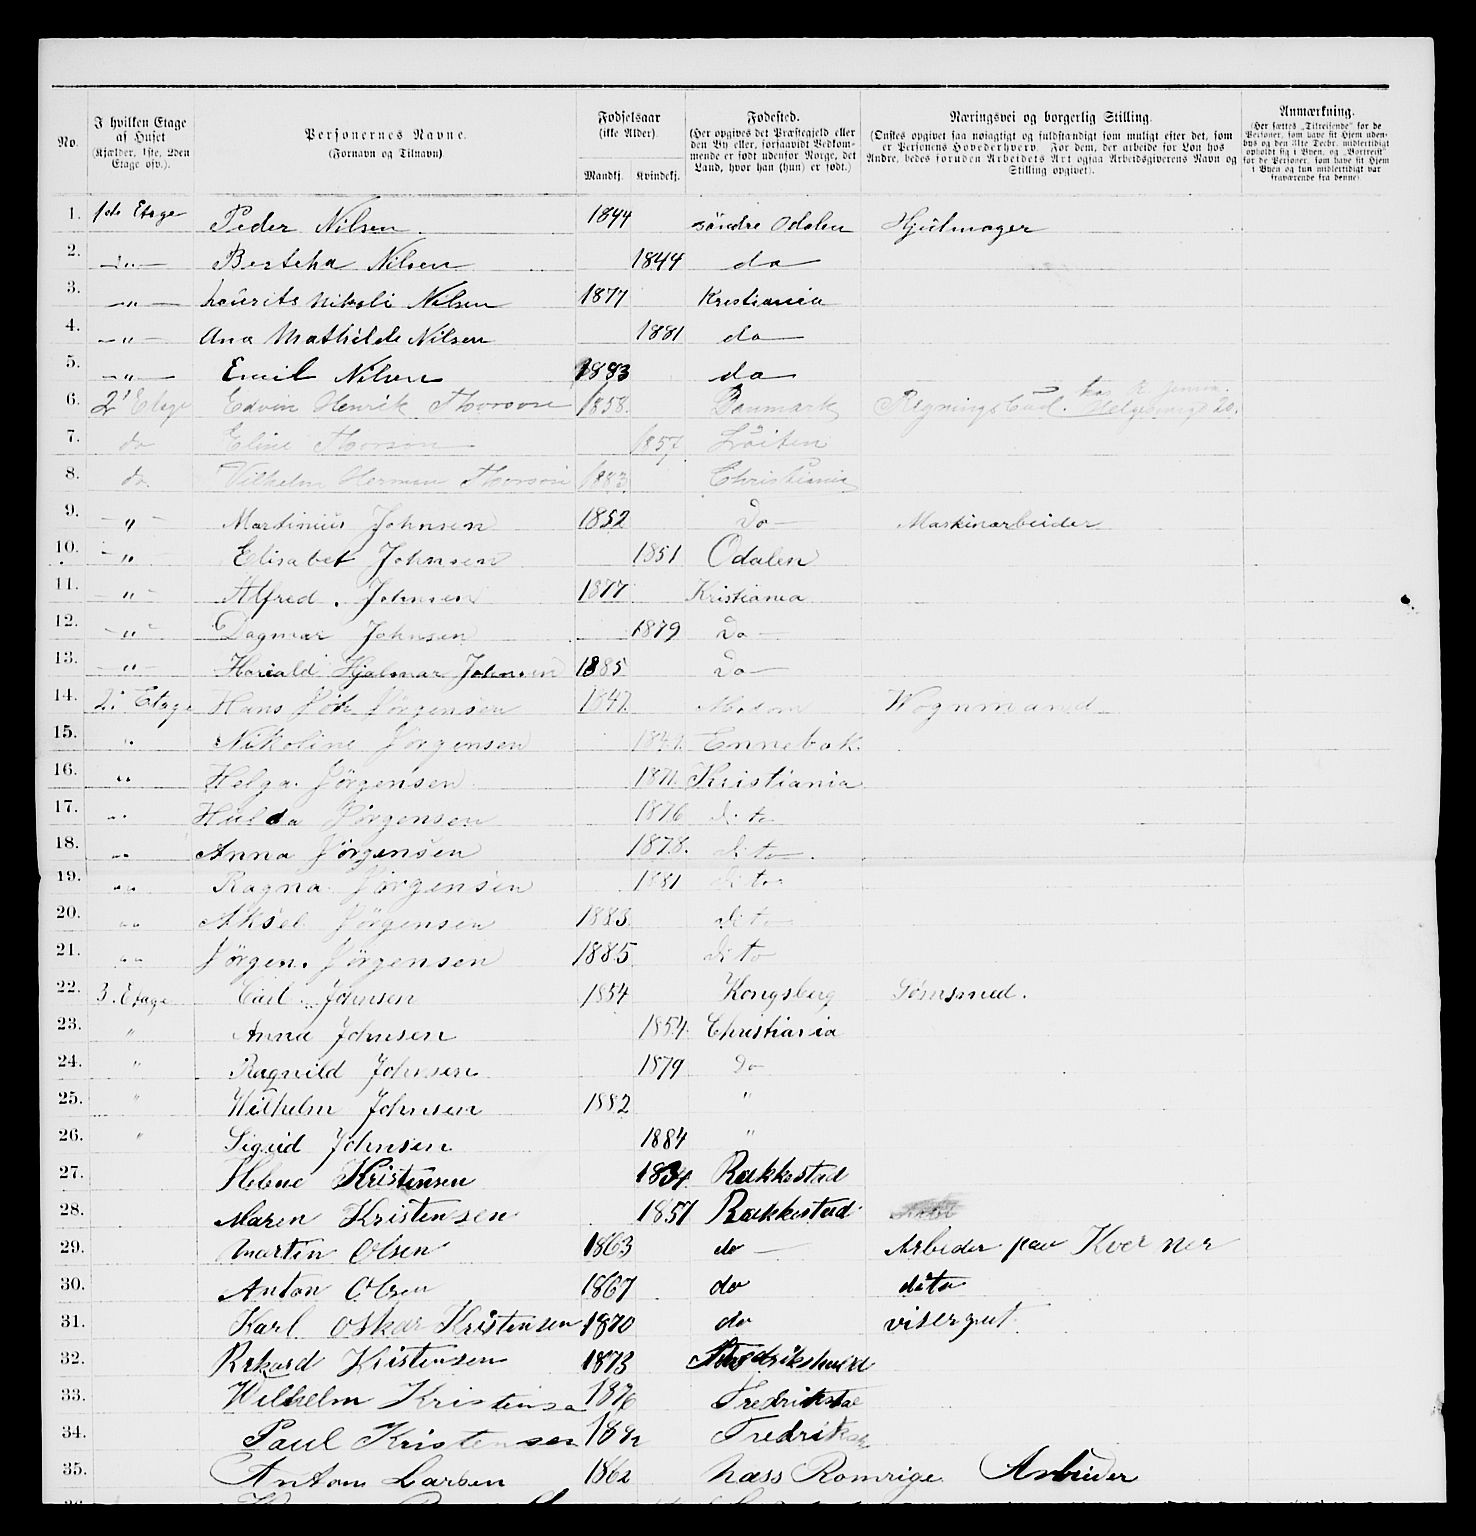 No.
I hvilken Etage af Huset (Kjælder, 1ste, 2den Etage osv.).
Personernes Navne. (Fornavn og Tilnavn)
Fødselsaar (ikke Alder). Mandkj. Kvindekj.
Fødested. (Her opgives det Præstegjeld eller den By eller, forsaavidt Vedkommende er født udenfor Norge, det Land, hvor han (hun) er født.)
Næringsvei og borgerlig Stilling. (Ønskes opgivet saa nøiagtigt og fuldstændigt som muligt efter det, som er Personens Hovederhverv. For dem, der arbeide for Løn hos Andre, bedes foruden Arbeidets Art ogsaa Arbeidsgiverens Navn og Stilling opgivet).
Anmærkning. (Her sættes „Tilreisende“ for de Personer, som have sit Hjem udenbys og den 31te Decbr. midlertidigt opholdt sig i Byen, og „Bortreist“ for de Personer, som have sit Hjem i Byen og kun midlertidigt var fraværende fra denne).
1. 1de Etage Peder Nilsen 1844 søndre Odalen Hjulmager
2. —„— Berteha Nilsen 1844 do
3. —„— Lourits Nikoli Nilsen 1877 Kristiania
4. —„— Ana Mathilde Nilsen 1881 do
5. —„— Emil Nilsen 1883 do
6. 2' Etage Edvin Henrik Thorson 1858. Danmark Regningsbud. hos Jensen
7. do Eline Thorson 1857 Löiten
8. do Vilhelm Herman Thorson 1883. Christiania
9. —„— Martinius Johnsen 1852 Do Maskinarbeider
10. —„— Elisabet Johnsen 1851 Odalen
11. —„— Alfred. Johnsen 1877 Kristiania
12. —„— Dagmar Johnsen 1879 Do
13. —„— Harald Hjalmar Johnsen 1885 Do
14. 2. Etage Hans Joh Jörgensen 1847. Modom Wognmand
15. „ Nikoline Jörgensen Ennebak.
16. „ Helga. Jörgensen 1871. Kristiania
17. „ Hulda Jörgensen 1876 dito
18. „ Anna Jörgensen 1878. dito
19. „ Ragna Jörgensen 1881 dito
20. „ Aksel Jörgensen 1883 dito
21. „ Jörgen. Jörgensen 1885 dito
22. 3. Etage Carl Johnsen 1854 Kongsberg Görtsmed.
23. „ Anna Johnsen 1854. Christiania
24. „ Ragnild Johnsen 1879 Do
25. „ Wilhelm Johnsen 1882 „
26. „ Sigrid Johnsen 1884 „
27. Helene Kristensen 1834 Rakkestad
28. Maren Kristensen 1851 Rakkestad
29. Martin Olsen 1863 do Arbeder paa Kverner
30. Anton Olsen 1867 do dito
31. Karl Oskar Kristensen 1870 do visergut
32. Rikard Kristensen 1873 Fredrikshald
33. Wilhelm Kristensen 1876 Fredrikstad
34. Paul Kristensen Fredriks
35. Anton Larsen 1862 Næss Romrige Arbeider